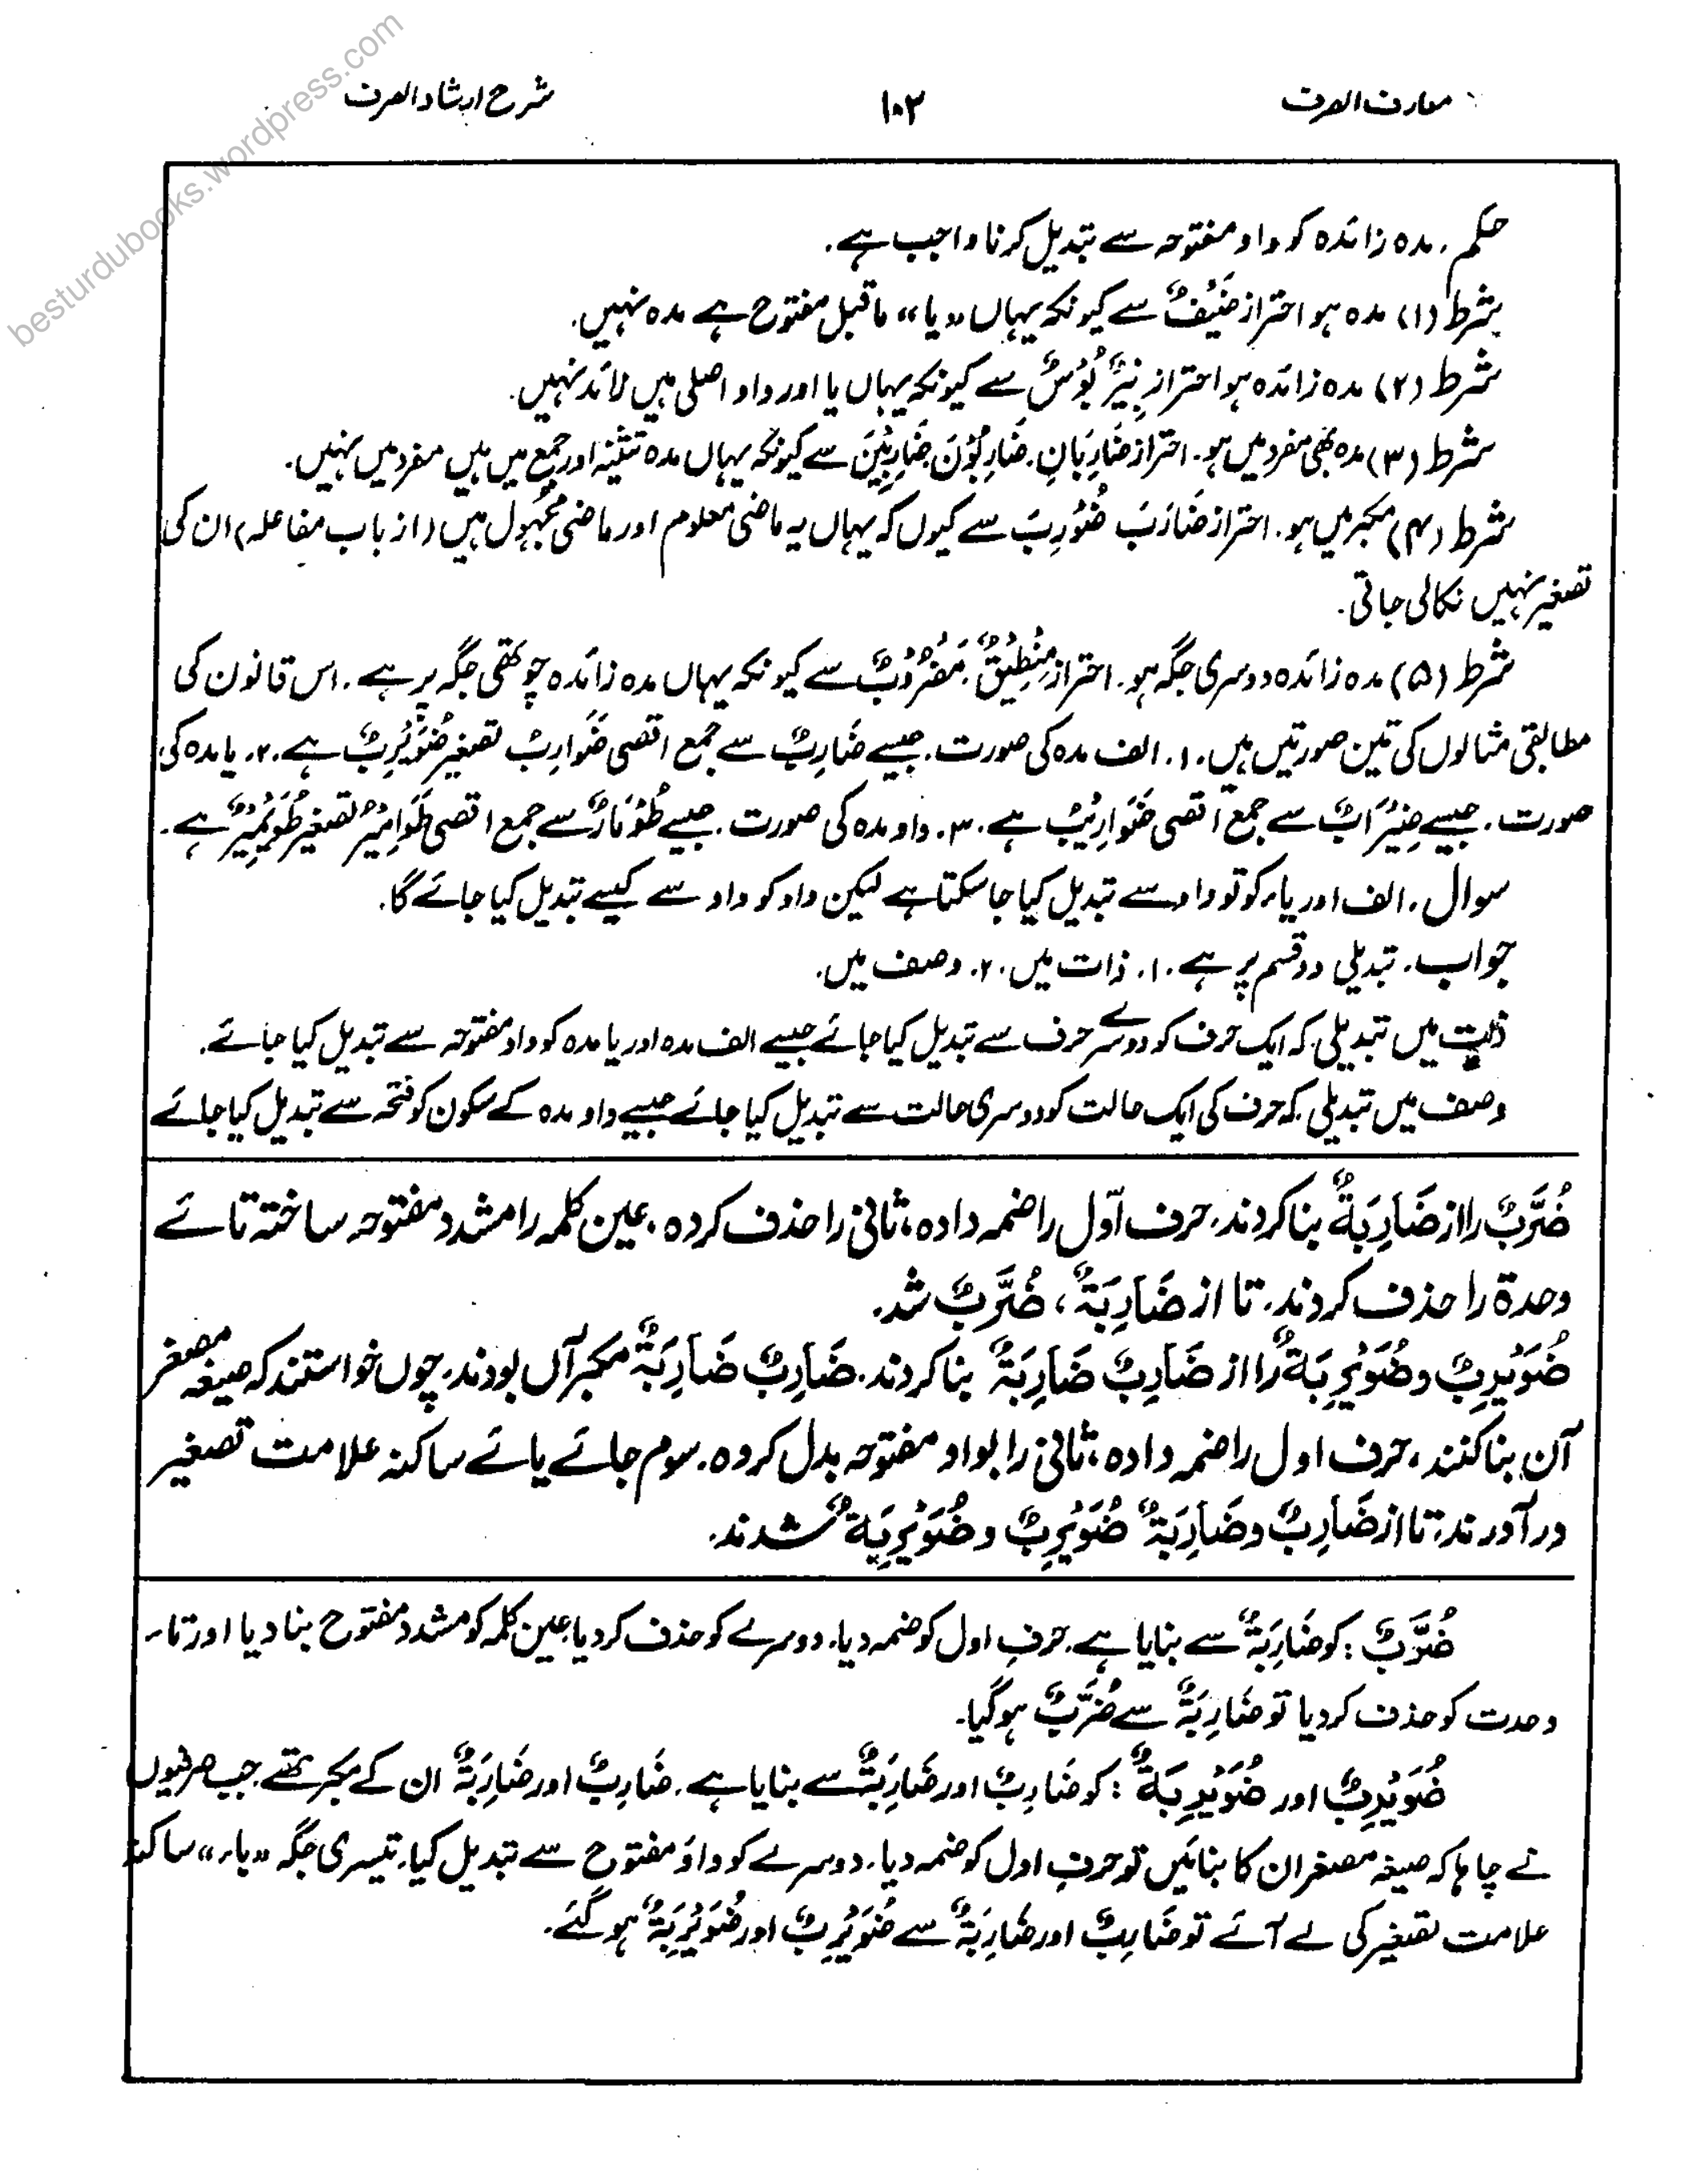 besturdubooks.wordpress.com
معارف الصرف ۱۰۲ شرح ارشاد الصرف
حکم۔ مدہ زائدہ کو واو مفتوحہ سے تبدیل کرنا واجب ہے۔
شرط (۱) مدہ ہو احتراز ضَیْفٌ سے کیونکہ یہاں «یا» ماقبل مفتوح ہے مدہ نہیں۔
شرط (۲) مدہ زائدہ ہو احتراز نِیْرٌ بُوْسٌ سے کیونکہ یہاں یا اور واو اصلی ہیں زائد نہیں۔
شرط (۳) مدہ بھی مفرد میں ہو۔ احتراز ضَارِبَانِ۔ ضَارِبُوْنَ۔ ضَارِبِیْنَ سے کیونکہ یہاں مدہ تثنیہ اور جمع میں ہیں مفرد میں نہیں۔
شرط (۴) مکبر میں ہو۔ احتراز ضَارَبَ ضُوْرِبَ سے کیوں کہ یہاں یہ ماضی معلوم اور ماضی مجہول ہیں (از باب مفاعلہ) ان کی
تصغیر نہیں نکالی جاتی۔
شرط (۵) مدہ زائدہ دوسری جگہ ہو۔ احتراز مِنْطِیْقٌ۔ مَضْرُوْبٌ سے کیونکہ یہاں مدہ زائدہ چوتھی جگہ پر ہے۔ اس قانون کی
مطابقی مثالوں کی تین صورتیں ہیں۔ ۱۔ الف مدہ کی صورت۔ جیسے ضَارِبٌ سے جمع اقصی ضَوَارِبُ تصغیر ضُوَیْرِبٌ ہے۔ ۲۔ یا مدہ کی
صورت۔ جیسے ضِیْرَابٌ سے جمع اقصی ضَوَارِیْبُ ہے۔ ۳۔ واو مدہ کی صورت۔ جیسے طُوْمَارٌ سے جمع اقصی طَوَامِیْرُ تصغیر طُوَیْمِیْرٌ ہے۔
سوال۔ الف اور یاء کو تو واو سے تبدیل کیا جا سکتا ہے لیکن واو کو واو سے کیسے تبدیل کیا جائے گا۔
جواب۔ تبدیلی دو قسم پر ہے۔ ۱۔ ذات میں۔ ۲۔ وصف میں۔
ذات میں تبدیلی کہ ایک حرف کو دوسرے حرف سے تبدیل کیا جائے جیسے الف مدہ اور یا مدہ کو واو مفتوحہ سے تبدیل کیا جائے۔
وصف میں تبدیلی کہ حرف کی ایک حالت کو دوسری حالت سے تبدیل کیا جائے جیسے واو مدہ کے سکون کو فتحہ سے تبدیل کیا جائے
ضُرَّبٌ را از ضَارِبَةٌ بنا کردند۔ حرف اوّل را ضمہ دادہ، ثانی را حذف کردہ، عین کلمہ را مشدد مفتوحہ ساختہ تائے
وحدة را حذف کردند۔ تا از ضَارِبَةٌ، ضُرَّبٌ شد۔
ضُوَیْرِبٌ و ضُوَیْرِبَةٌ را از ضَارِبٌ ضَارِبَةٌ بنا کردند۔ ضَارِبٌ ضَارِبَةٌ مکبر آں بودند۔ چوں خواستند کہ صیغہ مصغر
آن بنا کنند، حرف اول را ضمہ دادہ، ثانی را بواو مفتوحہ بدل کردہ۔ سوم جائے یائے ساکنہ علامت تصغیر
در آوردند۔ تا از ضَارِبٌ و ضَارِبَةٌ ضُوَیْرِبٌ و ضُوَیْرِبَةٌ شدند۔
ضُرَّبٌ: کو ضَارِبَةٌ سے بنایا ہے۔ حرفِ اول کو ضمہ دیا۔ دوسرے کو حذف کر دیا، عین کلمہ کو مشدد مفتوح بنا دیا اور تاء
وحدت کو حذف کر دیا تو ضَارِبَةٌ سے ضُرَّبٌ ہو گیا۔
ضُوَیْرِبٌ اور ضُوَیْرِبَةٌ: کو ضَارِبٌ اور ضَارِبَةٌ سے بنایا ہے۔ ضَارِبٌ اور ضَارِبَةٌ ان کے مکبر تھے۔ جب صرفیوں
نے چاہا کہ صیغہ مصغر ان کا بنائیں تو حرفِ اول کو ضمہ دیا۔ دوسرے کو واوَ مفتوح سے تبدیل کیا۔ تیسری جگہ «یاء» ساکنہ
علامت تصغیر کی لے آئے تو ضَارِبٌ اور ضَارِبَةٌ سے ضُوَیْرِبٌ اور ضُوَیْرِبَةٌ ہو گئے۔